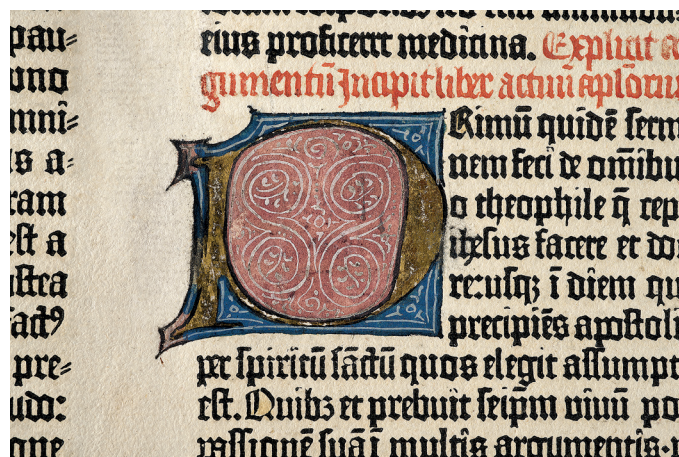 pau⸗
uno
mni⸗
s a⸗
ram
est a
pre⸗
one
eius proficeret medicina. Explicit a
gumentū Incipit liber actuū aplorū
PRimū quidē serm
nem feci de om̄ibu
o theophile q̄ cep
ihesus facere et do
re: usqȝ ī diem qu
precipiēs apostoli
per spiritū sāctū quos elegit assumpt
est. Quibȝ et prebuit seip̄m vivū po
passionē suā ī multis argumentis.